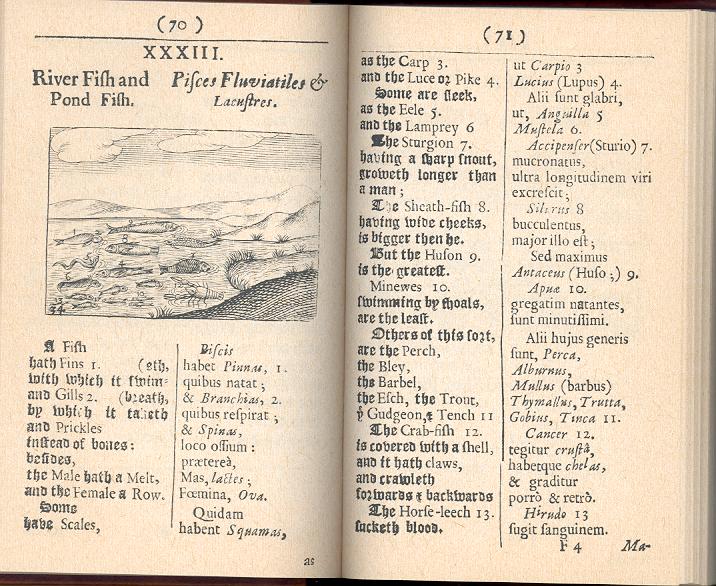 (70)
XXXIII.
River Fiſh and
Pond Fiſh.
Piſces Fluviatiles &
Lacuſtres.
34
A Fiſh
hath Fins 1. (eth,
with which it ſwim-
and Gills 2. (breath,
by which it taketh
and Prickles
inſtead of bones:
beſides,
the Male hath a Melt,
and the Female a Row.
Some
have Scales,
Piſcis
habet Pinnas, 1.
quibus natat;
& Branchias, 2.
quibus reſpirat;
& Spinas,
loco oſſium:
prætereà,
Mas, lactes;
Fœmina, Ova.
Quidam
habent Squamas,
as
(71)
as the Carp 3.
and the Luce or Pike 4.
Some are ſleek,
as the Eele 5.
and the Lamprey 6
The Sturgion 7.
having a ſharp ſnout,
groweth longer than
a man;
The Sheath-fiſh 8.
having wide cheeks,
is bigger then he.
But the Huſon 9.
is the greateſt.
Minewes 10.
ſwimming by ſhoals,
are the leaſt.
Others of this ſort,
are the Perch,
the Bley,
the Barbel,
the Eſch, the Trout,
ẏ Gudgeon, & Tench 11
The Crab-fiſh 12.
is covered with a ſhell,
and it hath claws,
and crawleth
forwards & backwards
The Horſe-leech 13.
ſucketh blood.
ut Carpio 3
Lucius (Lupus) 4.
Alii ſunt glabri,
ut, Anguilla 5
Muſtela 6.
Accipenſer (Sturio) 7.
mucronatus,
ultra longitudinem viri
excreſcit;
Silurus 8
bucculentus,
major illo eſt;
Sed maximus
Antaceus (Huſo;) 9.
Apuæ 10.
gregatim natantes,
ſunt minutiſſimi.
Alii hujus generis
ſunt, Perca,
Alburnus,
Mullus (barbus)
Thymallus, Trutta,
Gobius, Tinca 11.
Cancer 12.
tegitur cruſtâ,
habetque chelas,
& graditur
porrò & retrò.
Hirudo 13
ſugit ſanguinem.
F 4
Ma-